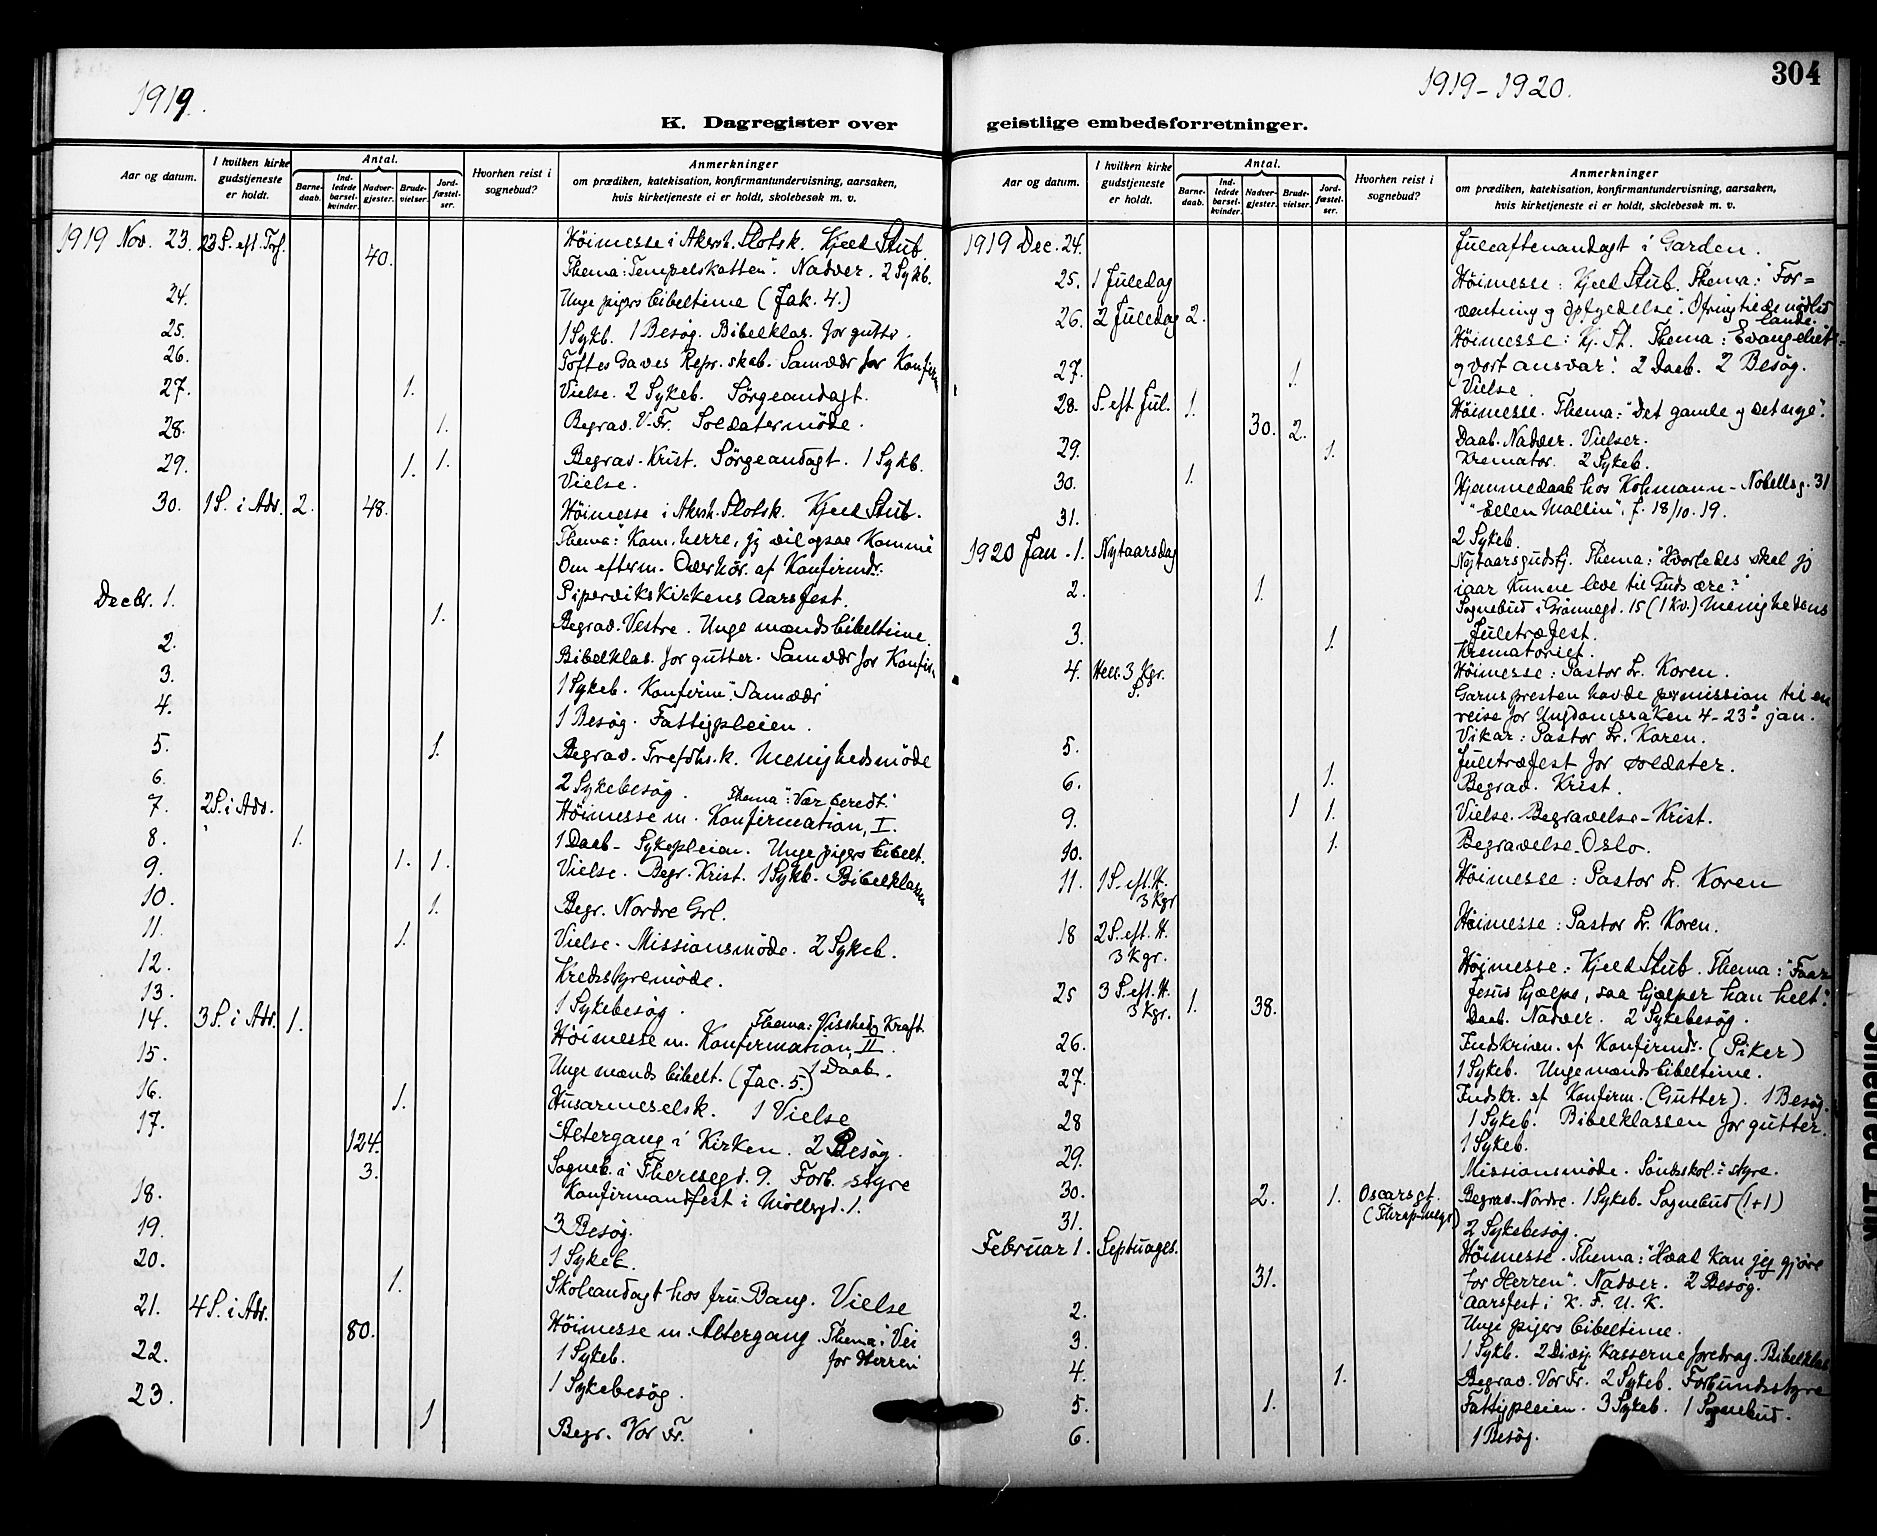 1919.
K. Dagregister over
Aar og datum.
I hvilken kirke gudstjeneste er holdt.
Antal.
Barne-daab.
Ind-ledede barsel-kvinder.
Nadver-gjester.
Brude-vielser.
Jord-fæstel-ser.
Hvorhen reist i sognebud?
Anmerkninger
om prædiken, katekisation, konfirmantundervisning, aarsaken,
hvis kirketjeneste ei er holdt, skolebesøk m. v.
1919 Nov. 23. 23 S. eft. Tref. 40. Höimesse i Aksrh. Slotsk. Kjeld Stub.
Thema: "Tempelskatten". Nadver. 2 Sykb.
24. Unge pigers bibeltime (Jak. 4.)
25. 1 Sykb. 1 Besøg. Bibelklas. for gutter.
26. Toftes Gaves Repr.skab. Samvær for Konfirm
27. 1. Vielse. 2 Sykeb. Sörgeandagt.
28. 1. Begrav. V-Fr. Soldatermöde.
29. 1. 1. Begrav. Krist. Sörgeandagt. 1 Sykb.
Vielse.
30. 1 S. i Adv. 2. 48. Höimesse i Aksrh. Slotsk. Kjeld Stub.
Thema: "Kom, herre, jeg vil ogsaa komme
Om efterm. Overhör. af Konfirmdr.
Decbr. 1. Piperviks Kirkens Aarsfest.
1. Begrav. Vestre. Unge mænds bibeltime.
2. Bibelklas. for gutter. Samvær for Konfir.
3. 1 Sykeb. Konfirm. Samvær
4. 1 Besøg. Fattigpleien.
5. 1. Begrav. Trefdhs.k. Menighedsmöde
6. 2 Sykebesøg. Thema: "Vær beredt."
7. 2 S. i Adv. Höimesse m. Konfirmation, I.
8. " 1. 1 Daab. Sykepleien. Unge pigers bibelt.
9. 1. 1. Vielse. Begr. Krist. 1 Sykb. Bibelklassen
10. 1. Begr. Nordre Grl.
11. 1. Vielse. Missionsmöde. 2 Sykeb.
12. Kredsstyremöde.
13. 1 Sykebesøg. Thema: Visshed og Kraft
14. 3 S. i Adv. 1. Höimesse m. Konfirmation, II
15. Unge mænds bibelt. (Jac. 5.) 1 Daab.
16. 1. Husarmeselsk. 1 Vielse
17. 124. Altergang i Kirken. 2 Besøg.
3. Sogneb. i Theresegd. 9. Forb. styre
18. Konfirmandfest i Möllergd. 1.
19. 3 Besøg.
20. 1 Sykeb.
1. Skoleandagt hos fru Bang. Vielse
21. 4 S. i Adv. 80. Höimesse m. Altergang. Thema: "Vei
for Herren
22. 1 Sykeb.
23. 1 Sykebesøg.
1 Begr. Vor Fr.
1919-1920.
304
geistlige embedsforretninger.
Aar og datum.
I hvilken kirke gudstjeneste er holdt.
Antal.
Barne-daab.
Ind-ledede barsel-kvinder.
Nadver-gjester.
Brude-vielser.
Jord-fæstel-ser.
Hvorhen reist i sognebud?
Anmerkninger
om prædiken, katekisation, konfirmantundervisning, aarsaken,
hvis kirketjeneste ei er holdt, skolebesøk m. v.
1919 Dec. 24. Juleaftenandagt i Garden.
25. 1 Juledag Höimesse: Kjeld Stub. Thema: "For=
ventning og opfyldelse". Ofring til de nødlid
lande.
26. 2 Juledag 2. Höimesse: Kj. St. Thema: "Evangeliet
og vort ansvar". 2 Daab. 2 Besøg.
27. 1. Vielse.
28. S. eft Jul. 1. 30. 2. Höimesse. Thema: "Det gamle og det nye".
Daab. Nadver. Vielser.
29. 1. Kremator. 2 Sykeb.
30. 1. Hjemmedaab hos Kohmann - Nobellsg. 31
"Ellen Mallin", f. 18/10. 19.
31. 2 Sykeb.
1920 Jan. 1. Nytaarsdag Nytaarsgudstj. Thema: "Hvorledes skal jeg
iaar kunne leve til Guds ære?"
2. 1. Sognebud i Grönnegd. 15 (1 Kv.) Menighedens
Juletræfest.
3. 1. Krematoriet.
4. Hell. 3 Kgr. S. Höimesse: Pastor Lr. Koren.
Garnis.presten havde permission til en
reise for Ungdomssaken 4-23de jan.
Vikar: Pastor Lr. Koren.
5. Juletræfest for soldater.
6. 1. Begrav. Krist.
9. 1 1. Vielse. Begravelse - Krist.
10. 1. Begravelse. Oslo.
11. 1 S. eft. H. 3 Kgr Höimesse: Pastor Lr. Koren
18 2 S. eft. H. 3 Kgr. Höimesse: Pastor Lr. Koren.
25 3 S. eft. H. 3 Kgr. 1. 38. Höimesse: Kjeld Stub. Thema: "Faar
Jesus hjælpe, saa hjælper han helt".
Daab. Nadver. 2 Sykebesøg.
26. Indskrivn. af Konfirmdr. (Piker)
1 Sykeb. Unge mænds bibeltime.
27. Indskr. af Konfirm. (Gutter). 1 Besøg.
1 Sykeb. Bibelklassen for gutter.
28 1 Sykeb.
29. Missionsmöde. Söndskol.s styre.
30. 2. 1. Oscarsgt. Begrav. Nordre. 1 Sykeb. Sognebud (1+1)
31. 2 Sykebesøg.
Februar 1. Septuages. 31. Höimesse. Thema: "Hvad kan jeg gjøre
for Herren". Nadver. 2 Besøg.
Aarsfest i K. F. U. K.
2. Unge pigers bibeltime.
3. 1 Sykb. 2 Divsj. Kasserne foredrag. Bibelklas
4. 1. Begrav. Vor Fr. 2 Sykeb. Forbundsstyre
5. 1. Fattigpleien. 3 Sykeb. 1 Sognebud.
6. 1 Besøg.